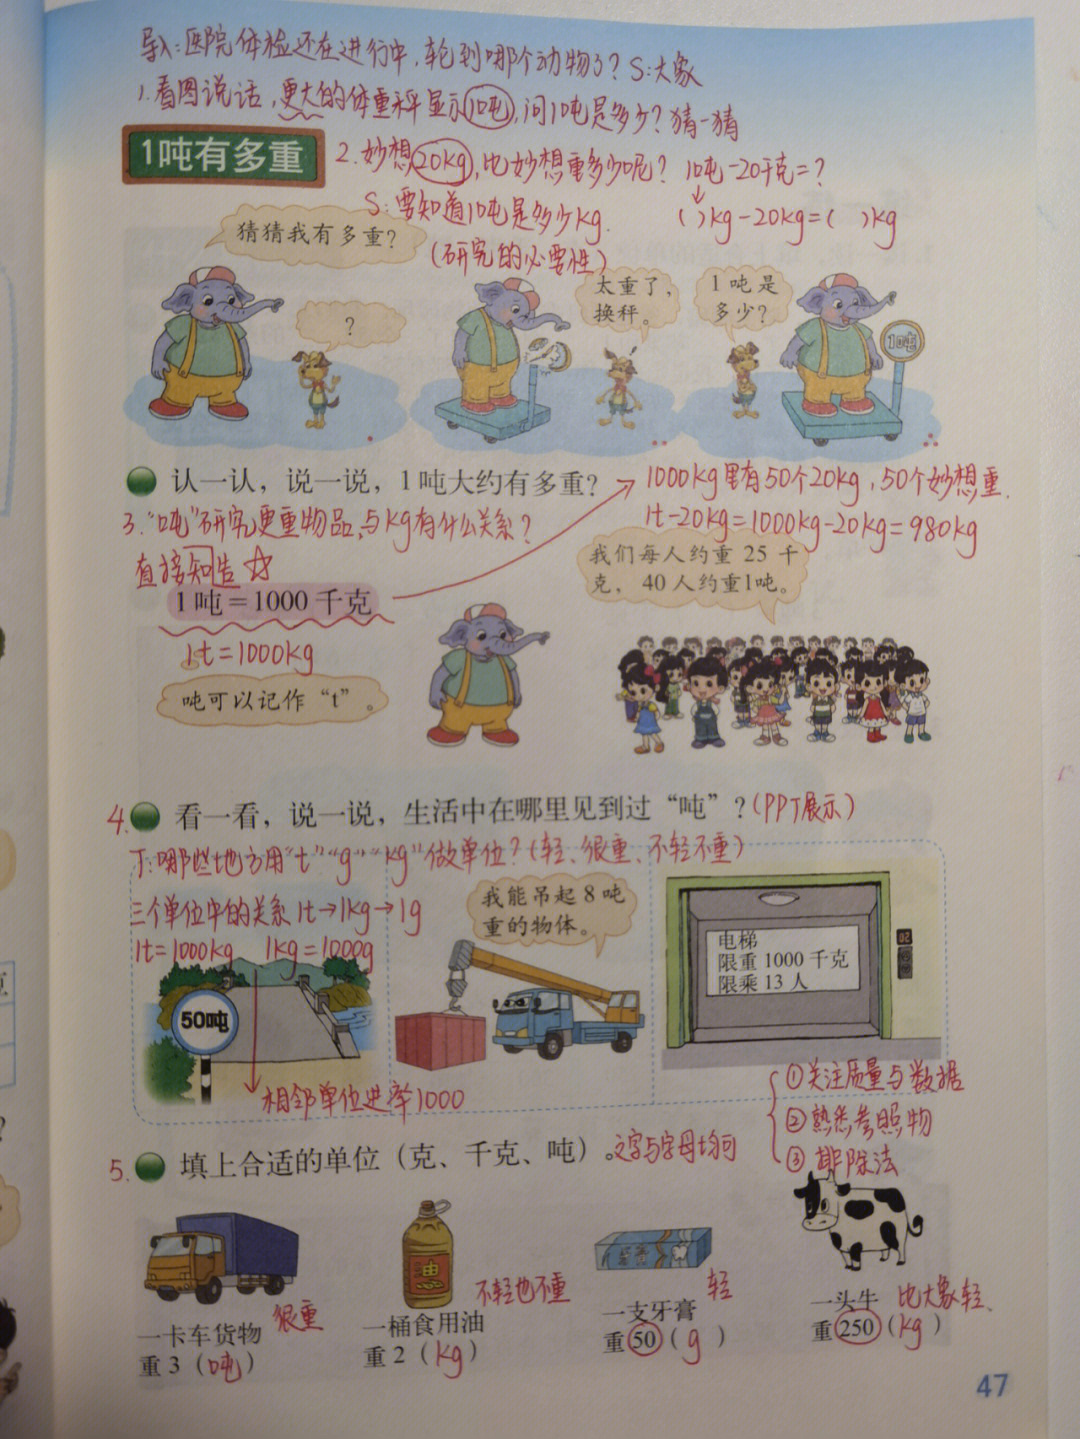 导入:医院体检还在进行中,轮到哪个动物了?S:大象
1.看图说话,更大的体重秤显示10吨,问10吨是多少?猜一猜
1吨有多重
2.妙想20kg,比妙想重多少呢? 10吨-20千克=?
S:要知道10吨是多少kg. ( )kg-20kg=( )kg
(研究的必要性)
猜猜我有多重?
?
太重了,
换秤。
1吨是
多少?
1吨
认一认,说一说,1吨大约有多重?
1000kg里有50个20kg,50个妙想重.
1t-20kg=1000kg-20kg=980kg
3.“吨”研究更重物品,与kg有什么关系?
直接知告☆
1吨=1000千克
1t=1000kg
吨可以记作“t”。
我们每人约重 25 千
克,40人约重1吨。
4.看一看,说一说,生活中在哪里见到过“吨”?(PPT展示)
T:哪些地方用“t”“g”“kg”做单位?(轻、很重、不轻不重)
三个单位中的关系 1t→1kg→1g
1t=1000kg 1kg=1000g
50吨
相邻单位进率1000
我能吊起 8 吨
重的物体。
电梯
限重 1000 千克
限乘 13 人
①关注质量与数据
②熟悉参照物
③排除法
5.填上合适的单位(克、千克、吨)。文字与字母均可
油
牙膏
一卡车货物 很重
重 3(吨)
一桶食用油 不轻也不重
重 2(kg)
一支牙膏 轻
重 50(g)
一头牛 比大象轻、
重 250(kg)
47